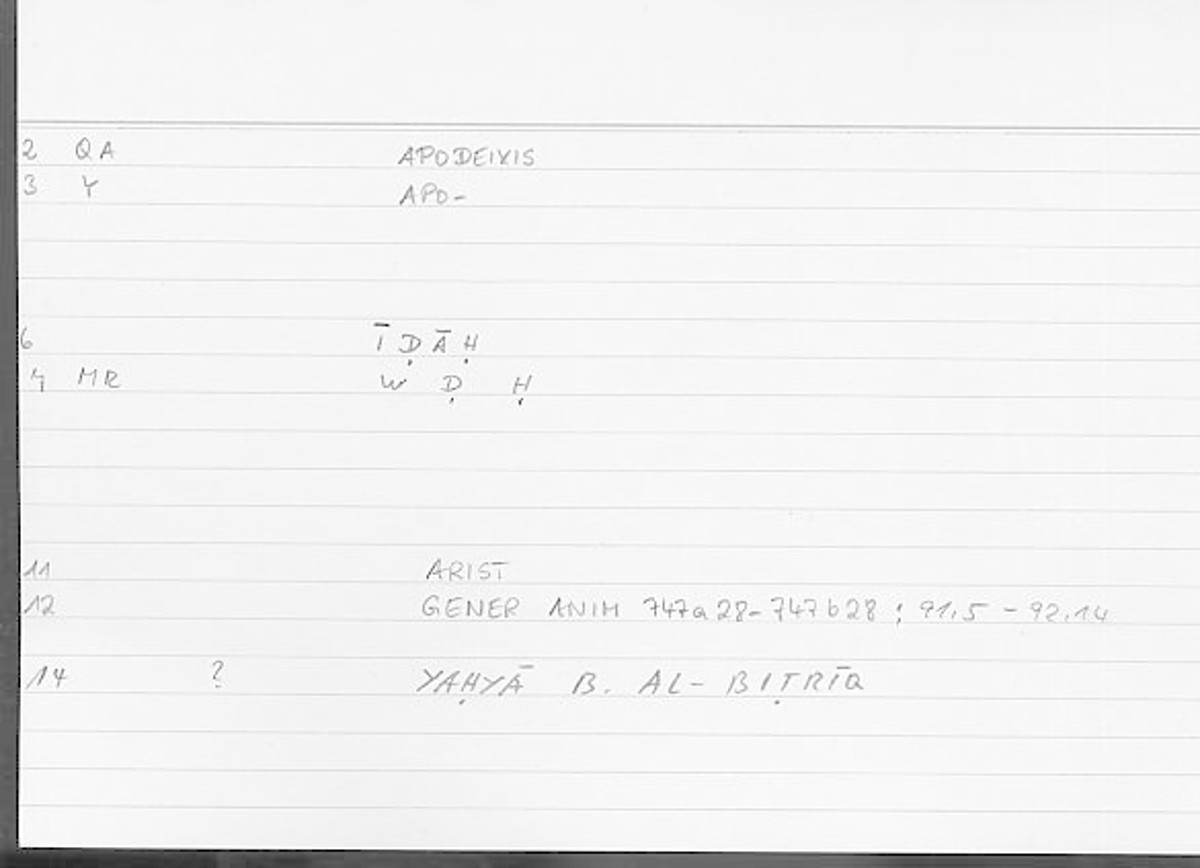 2 QA APODEIXIS
3 Y APO-
6 ĪḌĀḤ
4 MR W Ḍ Ḥ
11 ARIST
12 GENER ANIM 747a28-747b28 ; 91.5 - 92.14
14 ? YAḤYĀ B. AL-BIṬRĪQ